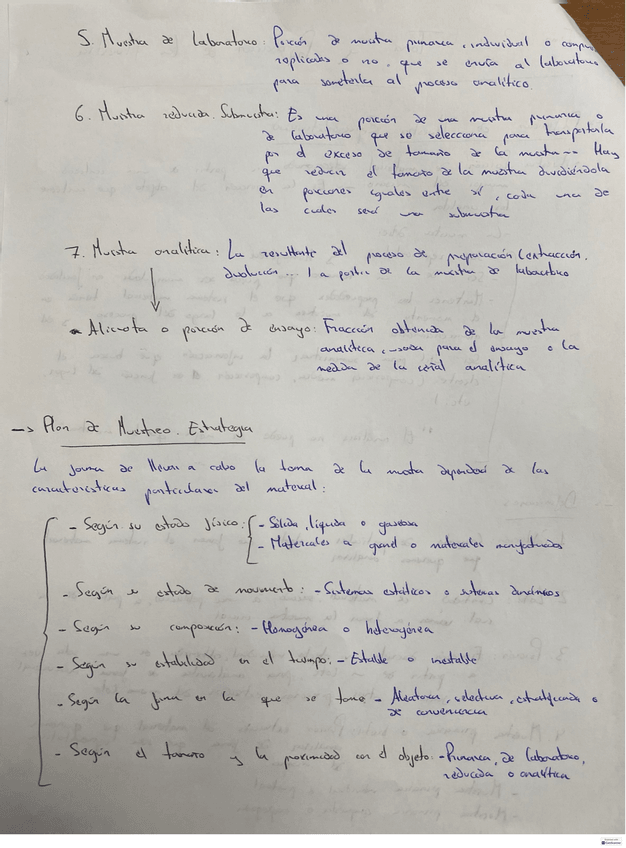 5. Muestra de laboratorio: Porción de muestra primaria, individual o
replicadas o no, que se envía al laboratorio
para someterla al proceso analítico.
6. Muestra reducida. Submuestra: Es una porción de una muestra primaria o
de laboratorio que se selecciona para transportarla
por el exceso de tamaño de la muestra -- Hay
que reducir el tamaño de la muestra dividiéndola
en porciones iguales entre sí, cada una de
las cuales será una submuestra
7. Muestra analítica: La resultante del proceso de preparación (extracción,
disolución...) a partir de la muestra de laboratorio
Alicuota o porción de ensayo: Fracción obtenida de la muestra
analítica, usada para el ensayo o la
medida de la señal analítica
→ Plan de Muestreo. Estrategia
La forma de llevar a cabo la toma de la muestra dependerá de las
características particulares del material:
- Según su estado físico: - Sólida, líquida o gaseosa
- Materiales a granel o materiales manufacturados
- Según su estado de movimiento: - Sistemas estáticos o sistemas dinámicos
- Según su composición: - Homogénea o heterogénea
- Según su estabilidad en el tiempo: - Estable o inestable
- Según la forma en la que se tome - Aleatoria, selectiva, estratificada o
de conveniencia
- Según el tamaño y la proximidad con el objeto: - Primaria, de laboratorio,
reducida o analítica